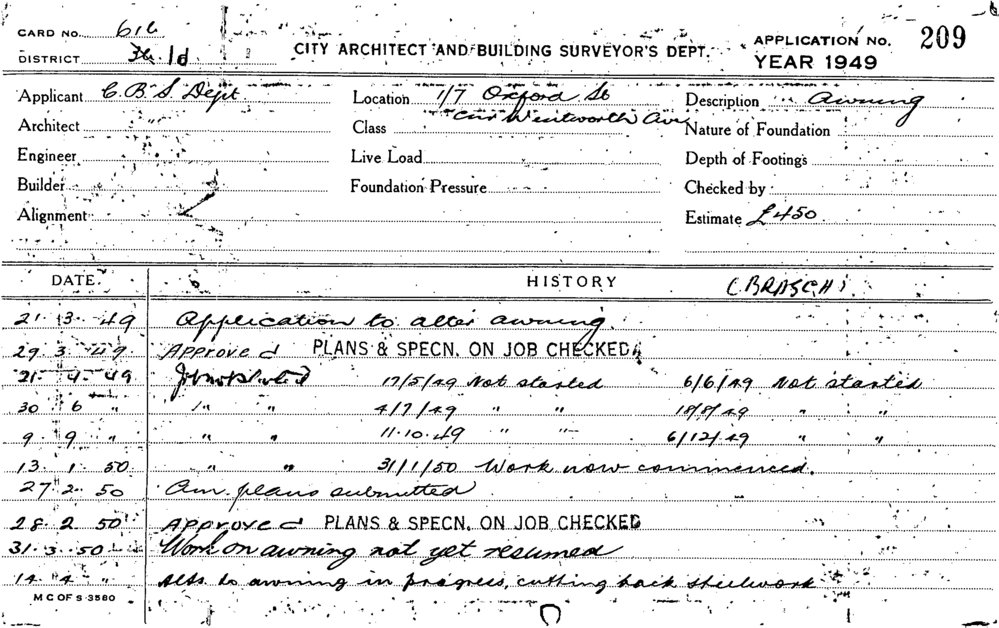 CARD NO. 616
DISTRICT 1d
CITY ARCHITECT AND BUILDING SURVEYOR'S DEPT.
APPLICATION No. 209
YEAR 1949
Applicant C.B.S Dept Location 1/7 Oxford St Description Awning
Architect Class cnr Wentworth Av Nature of Foundation
Engineer Live Load Depth of Footings
Builder Foundation Pressure Checked by
Alignment Estimate £450
DATE HISTORY (BRASCH)
21 3 49 Application to alter awning.
29 3 49 Approved PLANS & SPECN. ON JOB CHECKED
21 4 49 Job not started 17/5/49 Not started 6/6/49 Not started
30 6 " " " 4/7/49 " " 18/8/49 " "
9 9 " " " 11.10.49 " " 6/12/49 " "
13 1 50 " " 31/1/50 Work now commenced.
27 2 50 Am. plans submitted
28 2 50 Approved PLANS & SPECN. ON JOB CHECKED
31 3 50 Work on awning not yet resumed
14 4 " alts to awning in progress, cutting back steelwork
M C OF S 3580